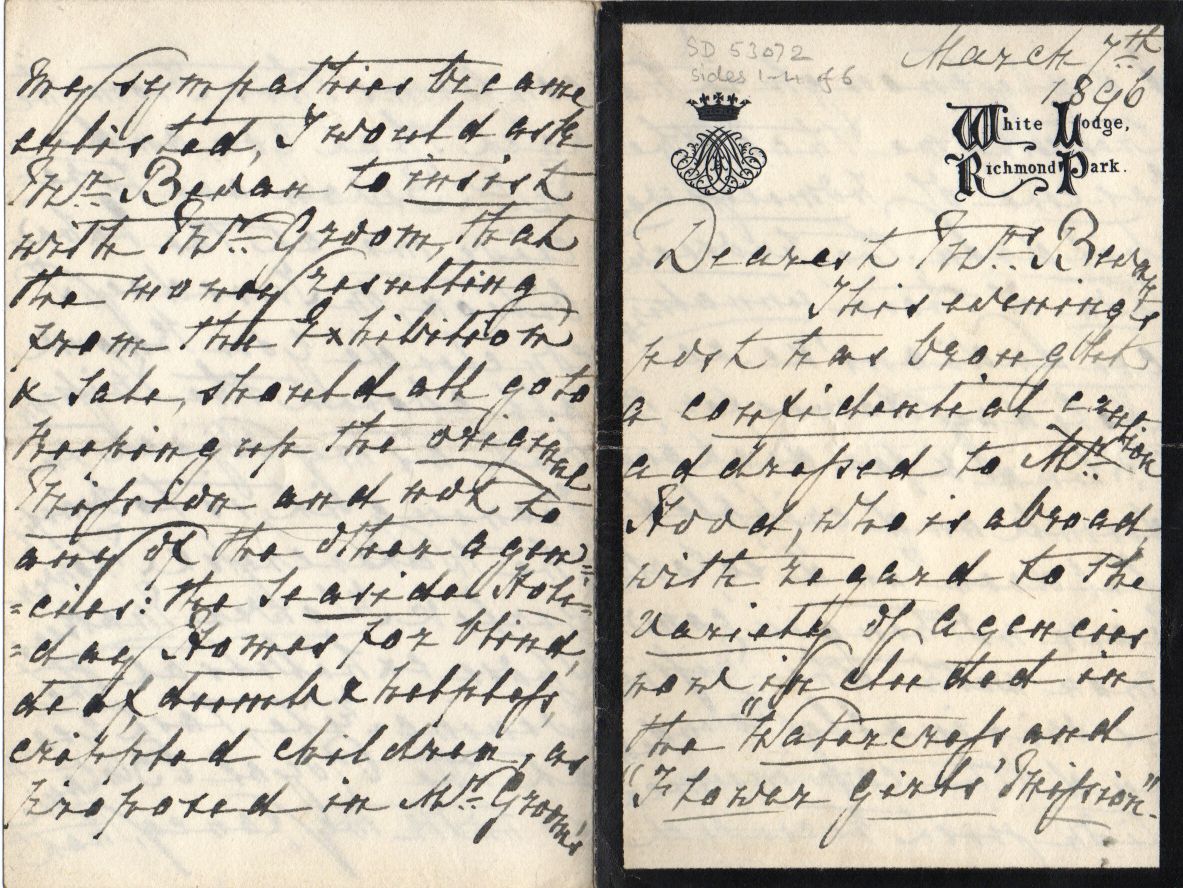 SD 53072
sides 1-4 of 6
March 7th
1896
White Lodge,
Richmond Park.
Dearest Mrs Bevan,
This evening's
post has brought
a confidential
addressed to Mr
Hood, who is abroad,
with regard to the
variety of agencies
now included in
the "Watercress and
"Flower Girls' Mission".
My sympathies became
enlisted, I would ask
Mr Bevan to insist
with Mr Groom, that
the money resulting
from the Exhibition
& Sale, should all go to
keeping up the original
Mission and not to
any of the other agen=
=cies: the Seaside Holi=
=day Homes for blind,
deaf, dumb & helpless,
crippled children, as
proposed in Mr Groom's